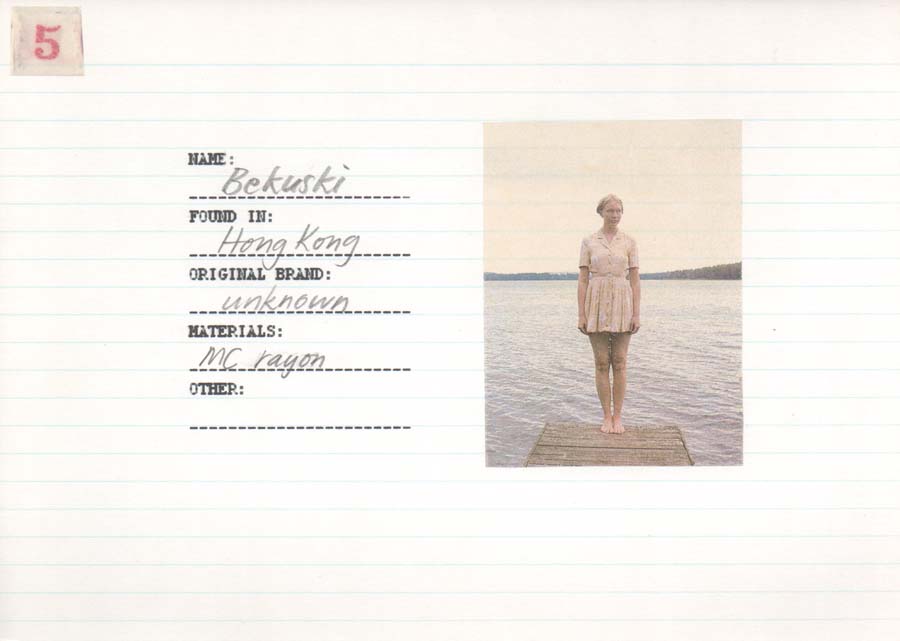 5
NAME:
Bekuski
FOUND IN:
Hong Kong
ORIGINAL BRAND:
unknown
MATERIALS:
MC rayon
OTHER: